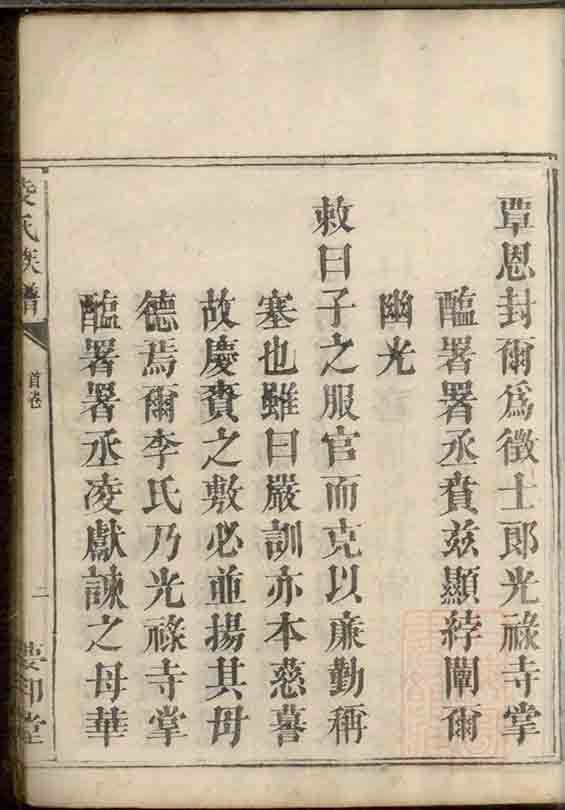 覃恩封爾為徵士郎光祿寺掌
醢署署丞賁兹顯綍闡爾
幽光
敕曰子之服官而克以亷勤稱
塞也雖曰嚴訓亦本慈善
故慶賚之敷必並揚其母
德焉爾李氏乃光祿寺掌
醢署署丞凌獻諫之母華
凌氏族譜
首卷
二